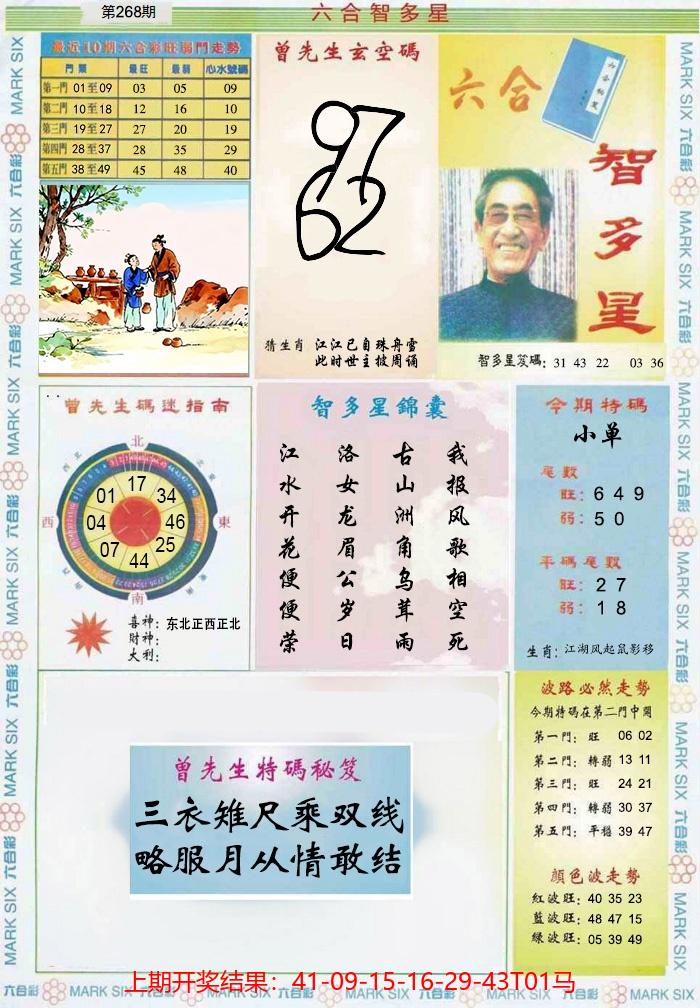 第268期
六合智多星
最近10期六合彩旺弱門走勢
門類 最旺 最弱 心水號碼
第一門 01至09 03 05 09
第二門 10至18 12 16 10
第三門 19至27 27 20 19
第四門 28至37 28 35 29
第五門 38至49 45 48 40
曾先生玄空碼
97
62
猜生肖 江江已自珠舟雪
此时世主披周诵
六合
智多星
智多星笈碼: 31 43 22 03 36
曾先生碼迷指南
北
西
東
南
17
34
46
25
44
07
04
01
喜神:
財神:
大利:
东北正西正北
智多星錦囊
江 洛 古 我
水 女 山 报
开 龙 洲 风
花 眉 角 歌
便 公 乌 相
便 岁 茸 空
荣 日 雨 死
今期特碼
小单
尾數
旺: 6 4 9
弱: 5 0
平碼尾數
旺: 2 7
弱: 1 8
生肖: 江湖风起鼠影移
曾先生特碼秘笈
三衣雉尺乘双线
略服月从情敢结
波路必然走勢
今期特碼在第二門中開
第一門: 旺 06 02
第二門: 轉弱 13 11
第三門: 旺 24 21
第四門: 轉弱 30 37
第五門: 平穩 39 47
顏色波走勢
紅波旺: 40 35 23
藍波旺: 48 47 15
綠波旺: 05 39 49
上期开奖结果：41-09-15-16-29-43T01马
MARK SIX 六合彩